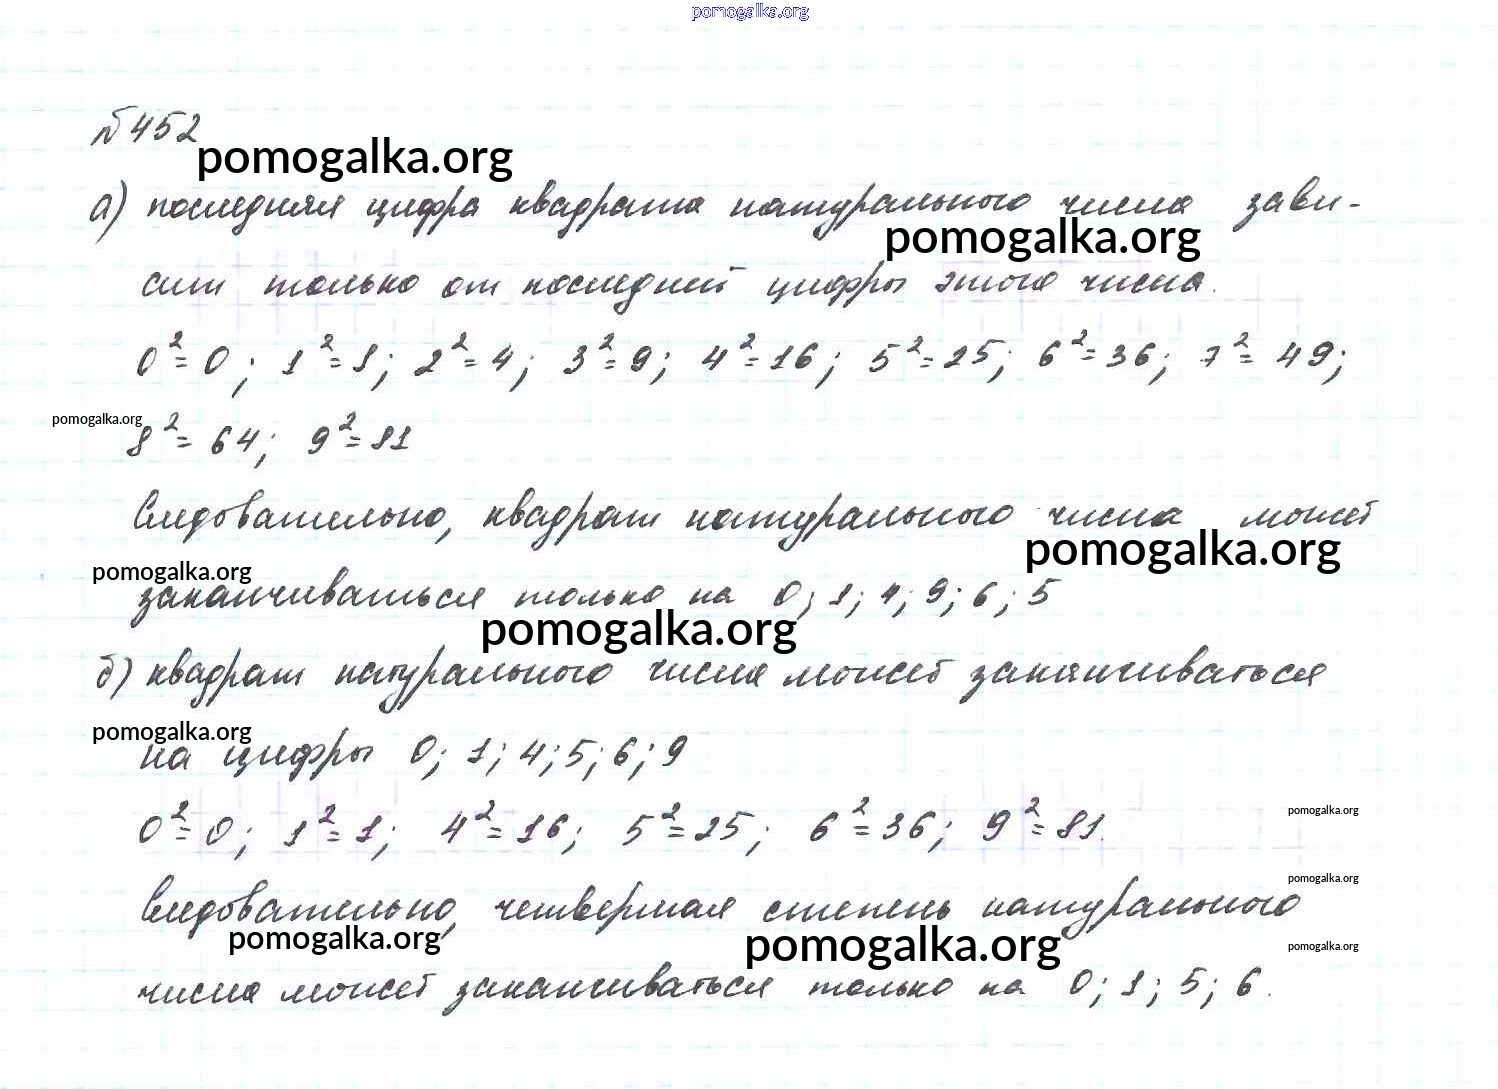 pomogalka.org
№ 452
pomogalka.org
а) последняя цифра квадрата натурального числа зави-
pomogalka.org
сит только от последней цифры этого числа.
0² = 0; 1² = 1; 2² = 4; 3² = 9; 4² = 16; 5² = 25; 6² = 36; 7² = 49;
pomogalka.org
8² = 64; 9² = 81
Следовательно, квадрат натурального числа может
pomogalka.org
pomogalka.org
заканчиваться только на 0; 1; 4; 9; 6; 5
pomogalka.org
б) квадрат натурального числа может заканчиваться
pomogalka.org
на цифры 0; 1; 4; 5; 6; 9
pomogalka.org
0² = 0; 1² = 1; 4² = 16; 5² = 25; 6² = 36; 9² = 81.
pomogalka.org
Следовательно, четвертая степень натурального
pomogalka.org
pomogalka.org
pomogalka.org
числа может заканчиваться только на 0; 1; 5; 6.